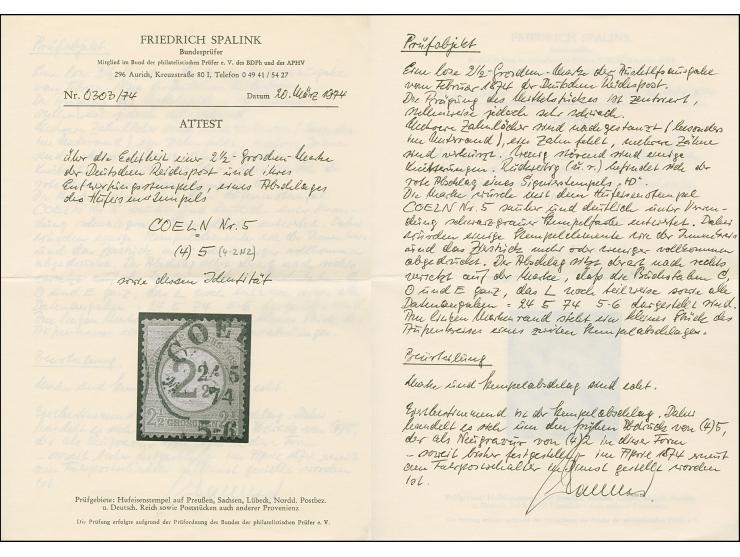 FRIEDRICH SPALINK
Bundesprüfer
Mitglied im Bund der philatelistischen Prüfer e. V. des BDPh und des APHV
296 Aurich, Kreuzstraße 80 I, Telefon 0 49 41 / 54 27
Nr. 0303/74 Datum 20. März 1974
ATTEST
über die Echtheit einer 2½-Groschen-Marke
der Deutschen Reichspost und ihres
Entwertungsstempels, eines Abschlages
des Hufeisenstempels
COELN Nr. 5
(4) 5 (4-2N2)
sowie dessen Identität
COEL
2
24 5
74
5-6
2½ GROSCHEN 2½
Prüfgebiete: Hufeisenstempel auf Preußen, Sachsen, Lübeck, Nordd. Postbez.
u. Deutsch. Reich sowie Poststücken auch anderer Provenienz
Die Prüfung erfolgte aufgrund der Prüfordnung des Bundes der philatelistischen Prüfer e. V.
Prüfobjekt
Eine lose 2½-Groschen-Marke der Aushilfsausgabe
vom Februar 1874 der Deutschen Reichspost.
Die Prägung des Mittelstückes ist zentriert,
stellenweise jedoch sehr schwach.
Mehrere Zahnlöcher sind nachgestanzt (besonders
im Unterrand), ein Zahn fehlt, mehrere Zähne
sind verkürzt. Wenig störend sind einige
Knitterungen. Rückseitig (u. r.) befindet sich der
rote Abschlag eines Signumstempels „HD".
Die Marke wurde mit dem Hufeisenstempel
COELN Nr. 5 sauber und deutlich unter Verwen-
dung schwarzgrauer Stempelfarbe entwertet. Dabei
wurden einige Stempelelemente wie der Innenkreis
und das Zierstück mehr oder weniger vollkommen
abgedruckt. Der Abschlag sitzt derart nach rechts
versetzt auf der Marke, daß die Buchstaben C,
O und E ganz, das L noch teilweise sowie alle
Datenangaben = 24 5 74 5-6 dargestellt sind.
Am linken Markenrand steht ein kleines Stück des
Außenkreises eines zweiten Stempelabschlages.
Beurteilung
Marke und Stempelabschlag sind echt.
Erstbestimmend ist der Stempelabschlag. Dabei
handelt es sich um den frühen Abdruck von (4)5,
der als Neugravur von (4)2 in dieser Form
- soweit bisher festgestellt - im April 1874 erneut
am Fahrpostschalter in Dienst gestellt worden
ist.